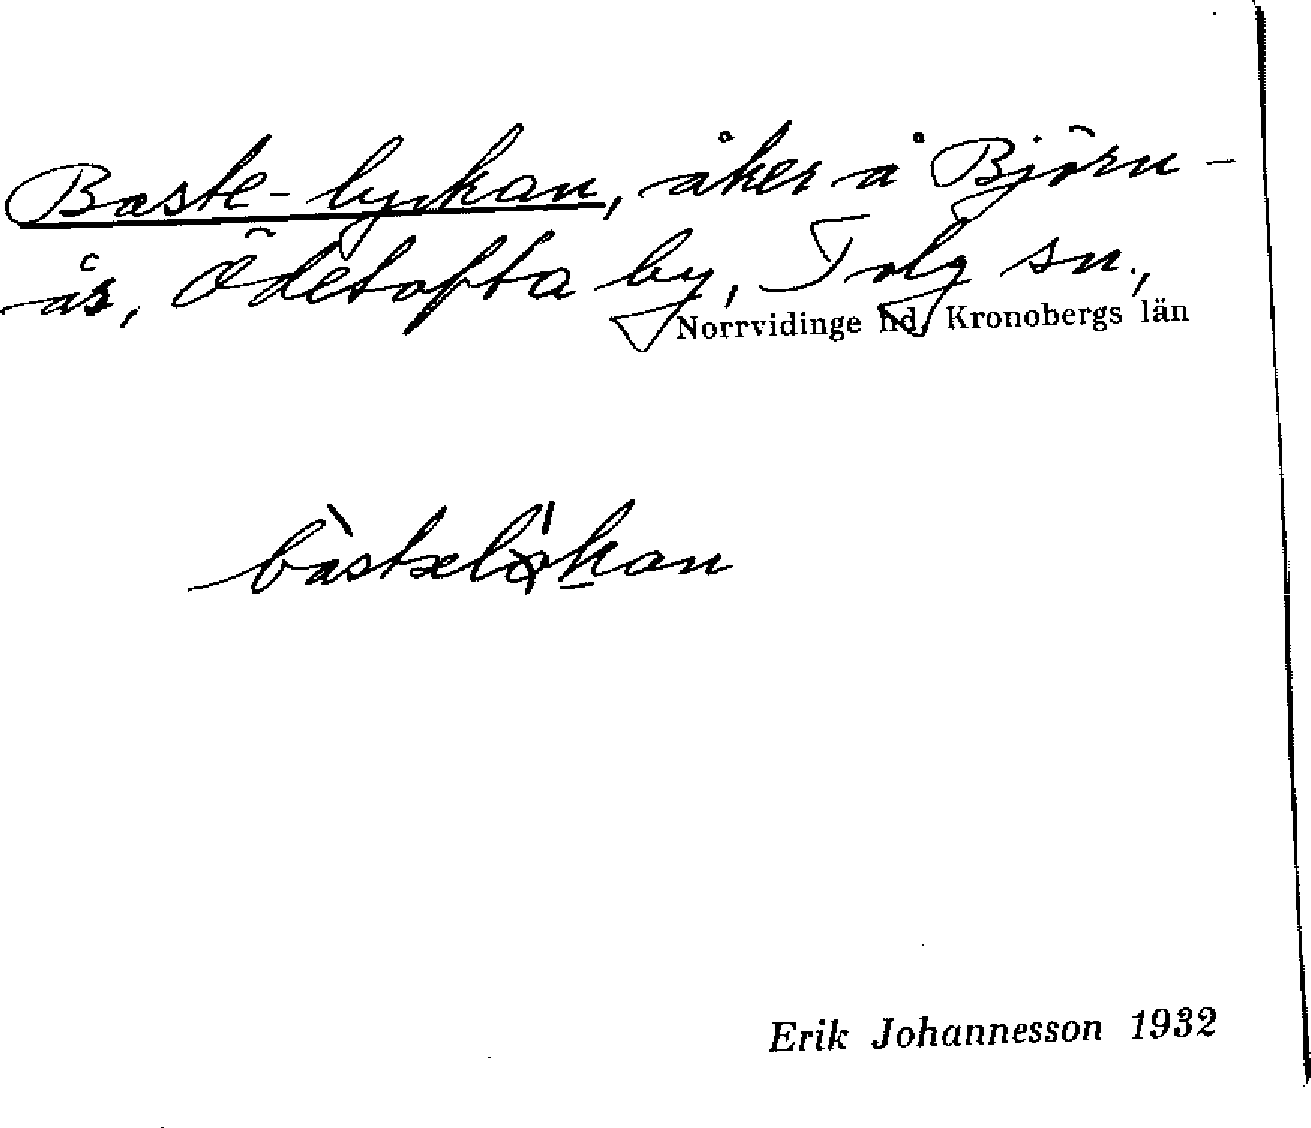 Baste-lyckan, åker å Björn-
ås, Ödetofta by, Tolg sn.,
Norrvidinge hd, Kronobergs län
bàstəlö̀kan
Erik Johannesson 1932